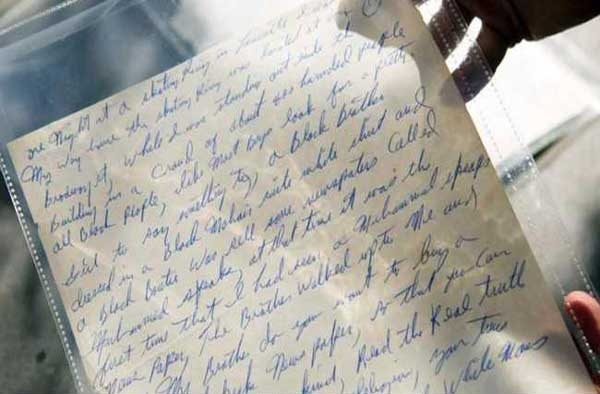 one Night at a skating Ring in Louisville
My way home the skating Ring was located at
Broadway st, while I was standing out side the
Building in a crowd of about 400 hundred people
all Black people, like most Boys look for a pretty
Girl to say something to, a Black Brother
dressed in a Black Mohair suite white shirt and
a Black Bowtie was sell some newspapers called
Muhammad speaks, at that time it was the
first time that I had seen a Muhammad speaks
News Paper, The Brother walked up to Me and
My Brother do you want to buy a
speaks News paper, so that you can
kind, Read the Real truth
Religion, your True
white Mans